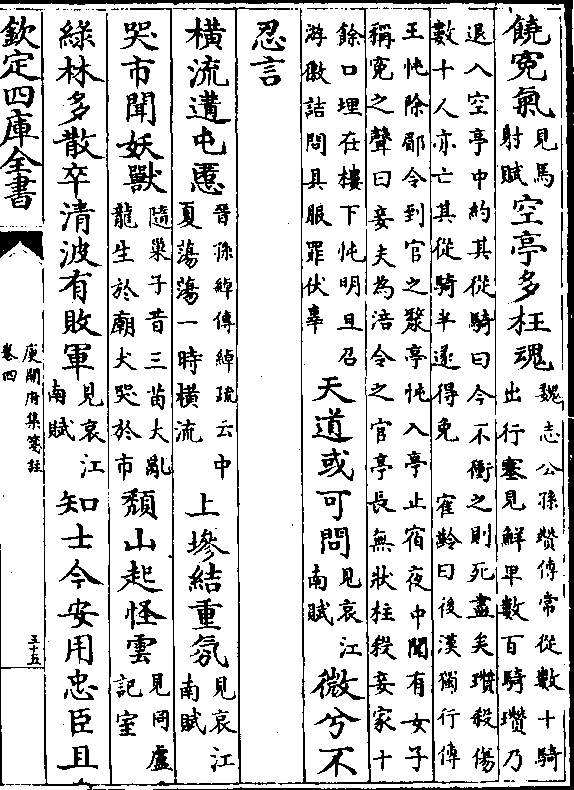 饒寃氣見馬射賦空亭多枉魂魏志公孫瓚傳常從數十騎出行塞見鮮卑數百騎瓚乃
退入空亭中約其從騎曰今不衝之則死盡矣瓚殺傷數十人亦亡其從騎半遂得免 寉齡曰後漢獨行傳
王忳除郿令到官之斄亭忳入亭止宿夜中聞有女子稱寃之聲曰妾夫為涪令之官亭長無狀枉殺妾家十
餘口埋在樓下忳明旦召游徼詰問具服罪伏辜天道或可問見哀江南賦微兮不
忍言
橫流遘屯慝晉孫綽傳綽疏云中夏蕩蕩一時橫流上墋結重氛見哀江南賦
哭市聞妖獸隨巢子昔三苗大亂龍生於廟犬哭於市頹山起怪雲見同盧記室
綠林多散卒清波有敗軍見哀江南賦知士今安用忠臣且
欽定四庫全書
庾開府集箋註
卷四
三十五